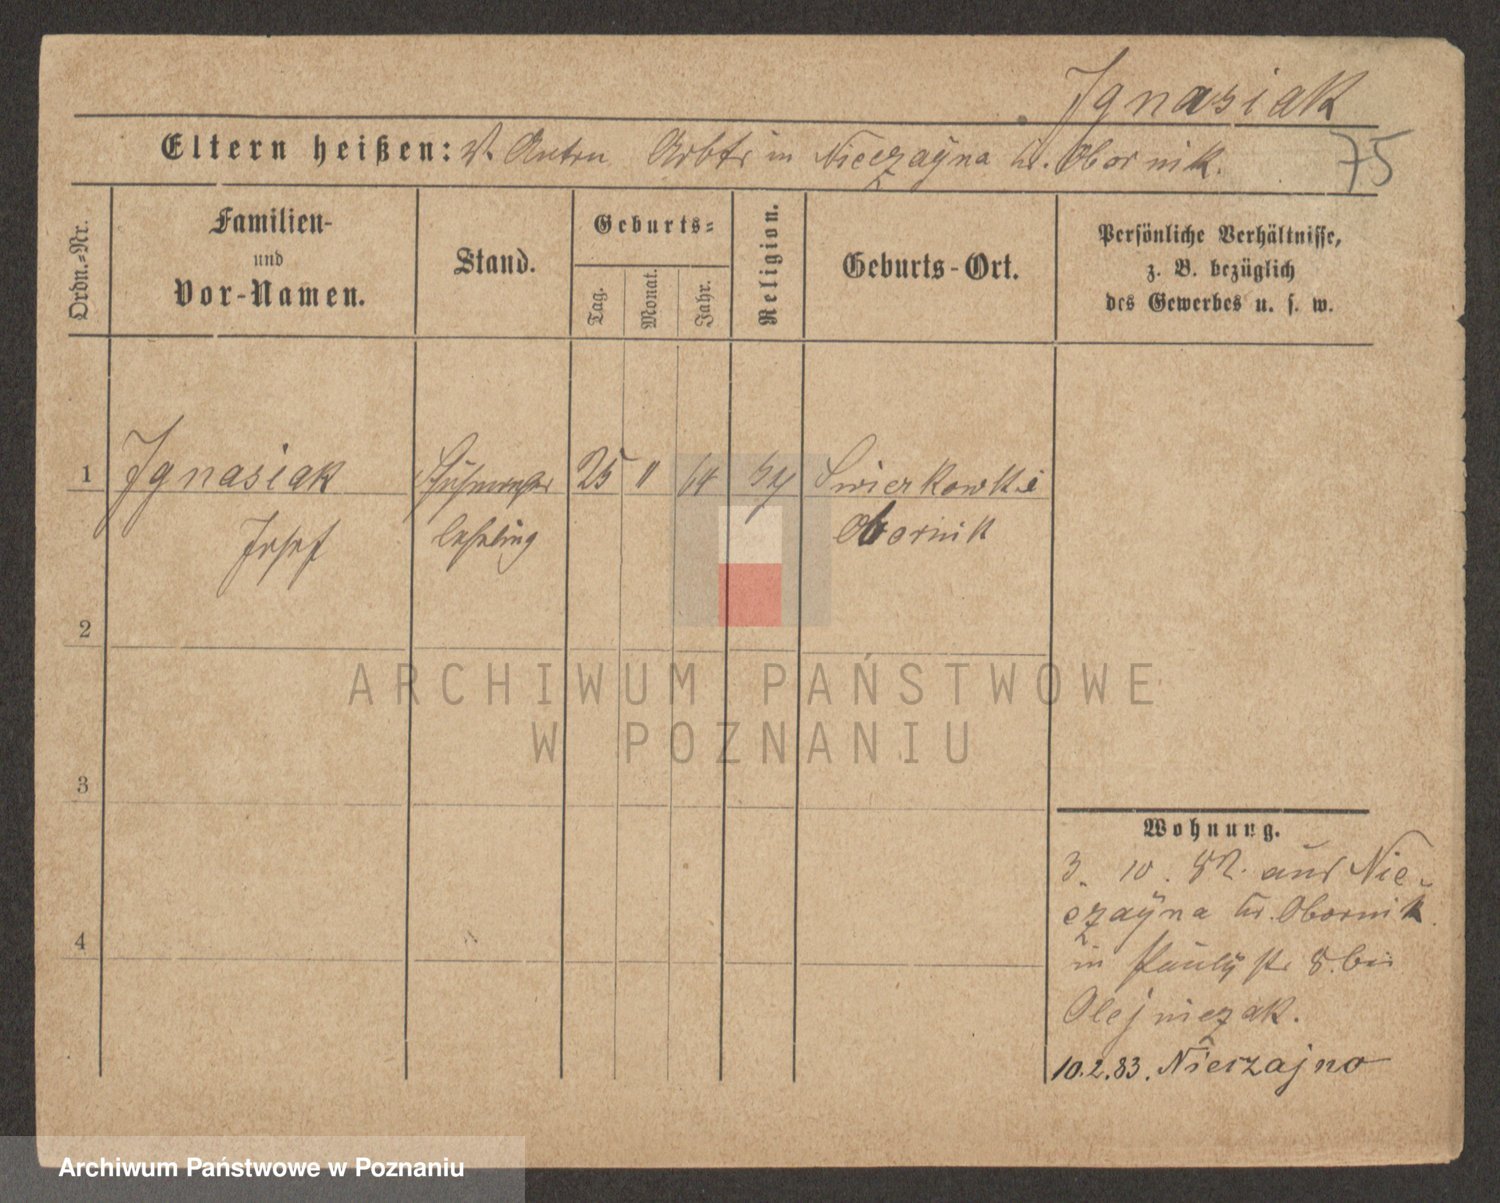 Ignasiak
Eltern heißen: V. Anton Arbtr in Nieczaÿna Kr. Obornik.
75
Ordn.-Nr.
Familien-
und
Vor-Namen.
Stand.
Geburts-
Tag.
Monat.
Jahr.
Religion.
Geburts-Ort.
Persönliche Verhältnisse,
z. B. bezüglich
des Gewerbes u. s. w.
1 Ignasiak Schuhmacher 25 11 64 Swierkowki
Josef lehrling Obornik
2
3
4
ARCHIWUM PAŃSTWOWE
W POZNANIU
Wohnung.
3. 10. 82. aus Nie-
czaÿna Kr. Obornik
in 8. bei
Olejniczak.
10.2.83. Nieczajno
Archiwum Państwowe w Poznaniu